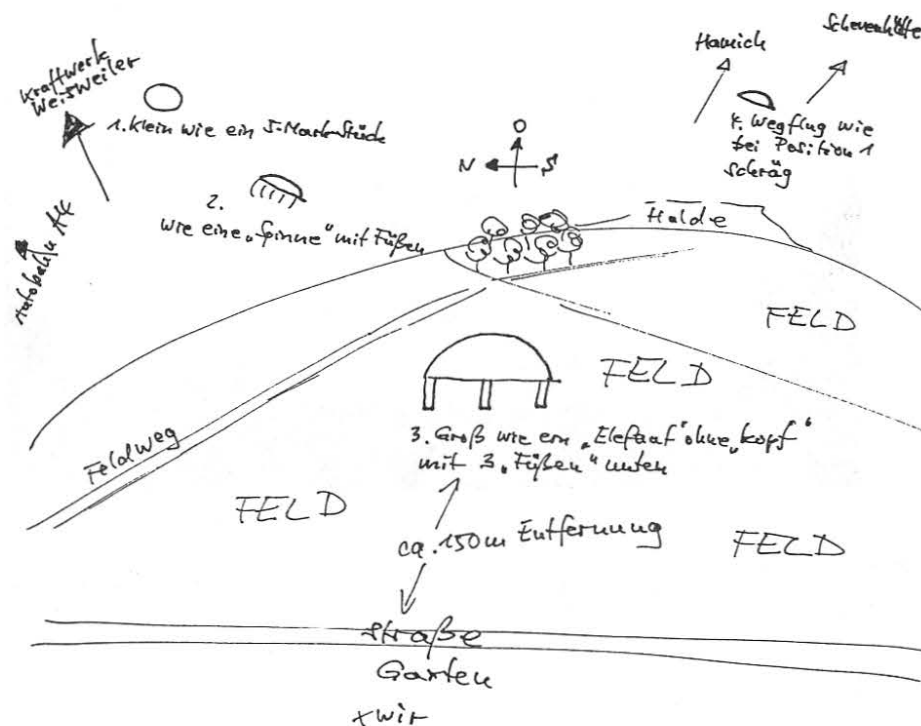 Kraftwerk
Weisweiler
1. Klein wie ein 5-Markstück
Autobahn A4
2.
wie eine „Spinne“ mit Füßen
O
N S
Hamich
Schevenhütte
4. Wegflug wie
bei Position 1
schräg
Halde
FELD
FELD
Feldweg
3. Groß wie ein „Elefant“ ohne „Kopf“
mit 3 „Füßen“ unten
FELD
ca. 150m Entfernung
FELD
Straße
Garten
x wir